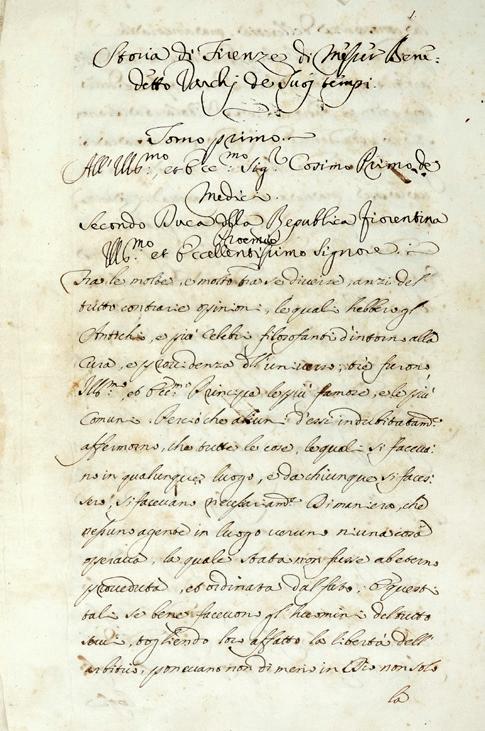 1
Storia di Firenze di Messer Bene:
detto Varchi de Suoj tempi.
Tomo primo.
All' Ill.mo et Ecc:mo Sig.r Cosimo Primo de
Medici.
Secondo Duca della Republica Fiorentina
Proemio
Ill.mo et Eccellentissimo Signore.
Tra le molte, e molto tra se diverse, anzi del
tutto contrarie opinioni, le quali hebbero gl'
Antichi, e più celebri filosofanti d'intorno alla
Cura, e providenza dell'universo, tre furono
Ill.mo, et Ecc.mo Principe le più famose, e le più
Comuni. Perciò che alcuni d'essi indubitatam.e
affermorno, che tutte le cose, le quali si faceva:
no in qualunque luogo, e da chiunque si faces:
sero, si facevano necessariam.e Di maniera, che
nessuno agente in luogo veruno niuna cosa
operava, la quale stata non fusse ab eterno
proveduta, et ordinata dal fato. E questi
tali se bene facevon gl'huomini del tutto
servi, togliendo loro affatto la libertà dell'
arbitrio, ponevano non di meno in Dio non solo
la